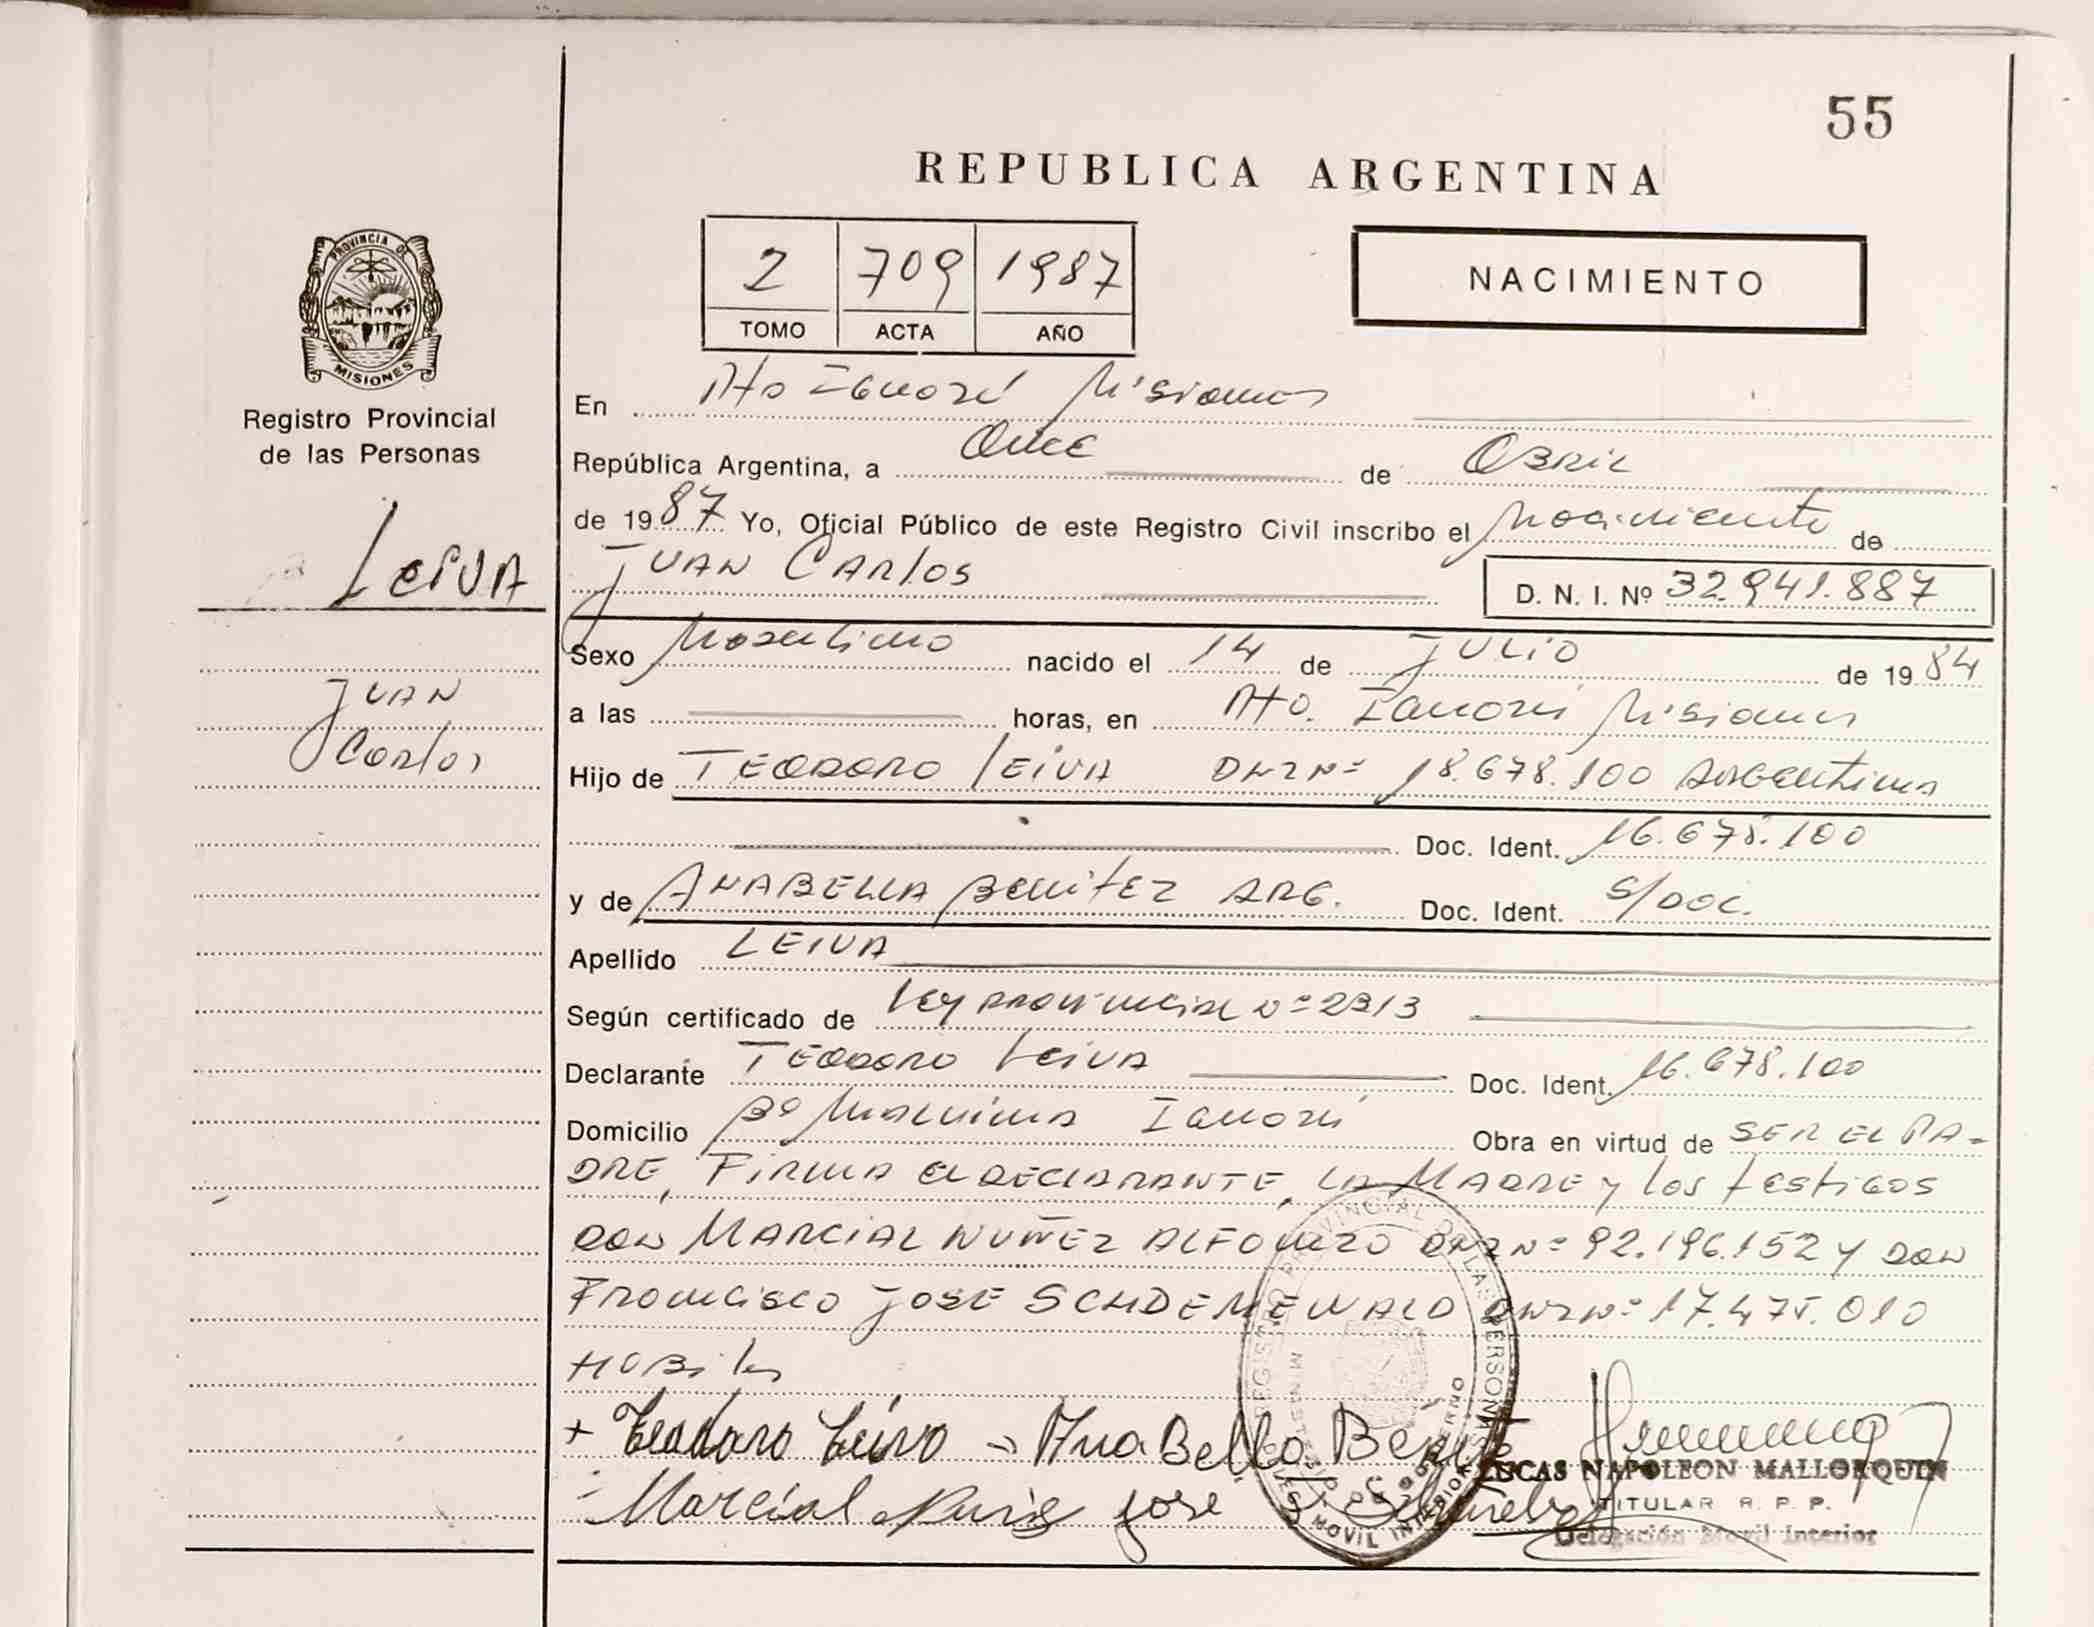 55
REPUBLICA ARGENTINA
2 709 1987
TOMO ACTA AÑO
NACIMIENTO
PROVINCIA DE
MISIONES
Registro Provincial
de las Personas
LEIVA
JUAN
Carlos
En Pto Iguazú Misiones
República Argentina, a Once de Abril
de 1987 Yo, Oficial Público de este Registro Civil inscribo el Nacimiento de
JUAN CARLOS
D. N. I. Nº 32.941.887
Sexo Masculino nacido el 14 de JULIO de 1984
a las horas, en Pto. Iguazú Misiones
Hijo de TEODORO LEIVA DNI Nº 18.678.100 Argentino
Doc. Ident. 16.678.100
y de ANABELLA BENITEZ ARG. Doc. Ident. S/DOC.
Apellido LEIVA
Según certificado de Ley Provincial Nº 2313
Declarante TEODORO LEIVA Doc. Ident. 16.678.100
Domicilio Bº Iguazú Obra en virtud de SER EL PA-
DRE, FIRMA EL DECLARANTE, LA MADRE y los testigos
DON MARCIAL NUÑEZ ALFONZO DNI Nº 92.196.152 Y DON
Francisco JOSE DNI Nº 17.475.010
HOBiles
+ Teodoro Leiva - AnaBella
Marcial jose
LUCAS NAPOLEON MALLORQUIN
TITULAR R. P. P.
Delegación Movil Interior